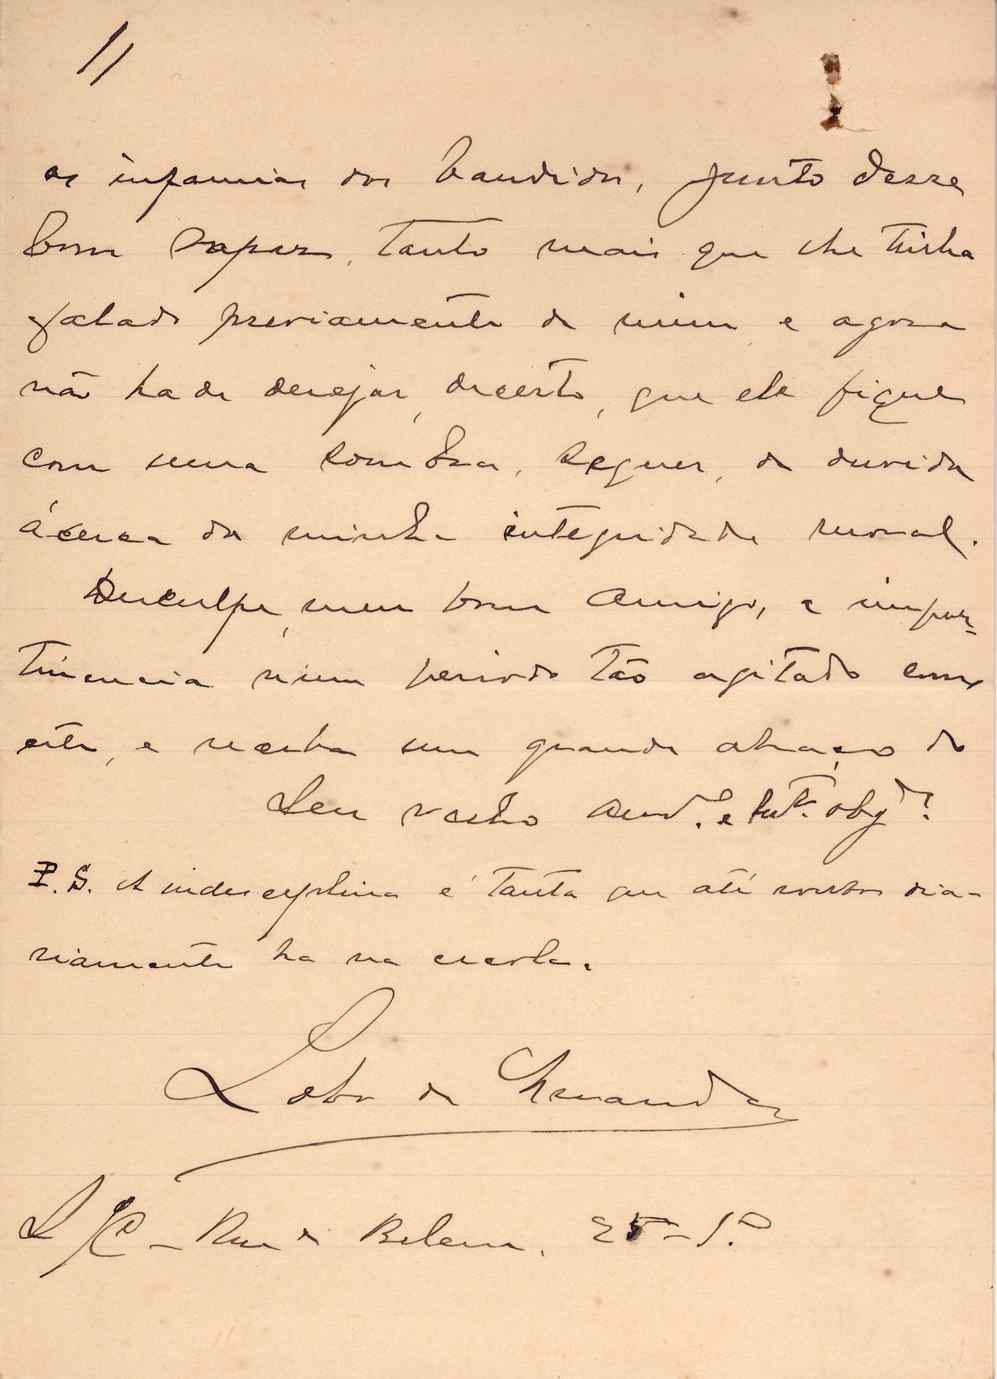 11
as infamias dos bandidos, junto desse
bom rapaz, tanto mais que lhe tinha
falado previamente de mim e agora
não ha de desejar, decerto, que ele fique
com uma sombra, sequer, de duvida
ácerca da minha integridade moral.
Desculpe, meu bom amigo, a imper-
tinencia n'um periodo tão agitado como
este, e receba um grande abraço do
Seu velho amº. e obgdº.
P. S. A indesciplina é tanta que até roubos dia-
riamente ha na escola.
Lobo de
S/C – Rua de Belem, 25 – 1.º